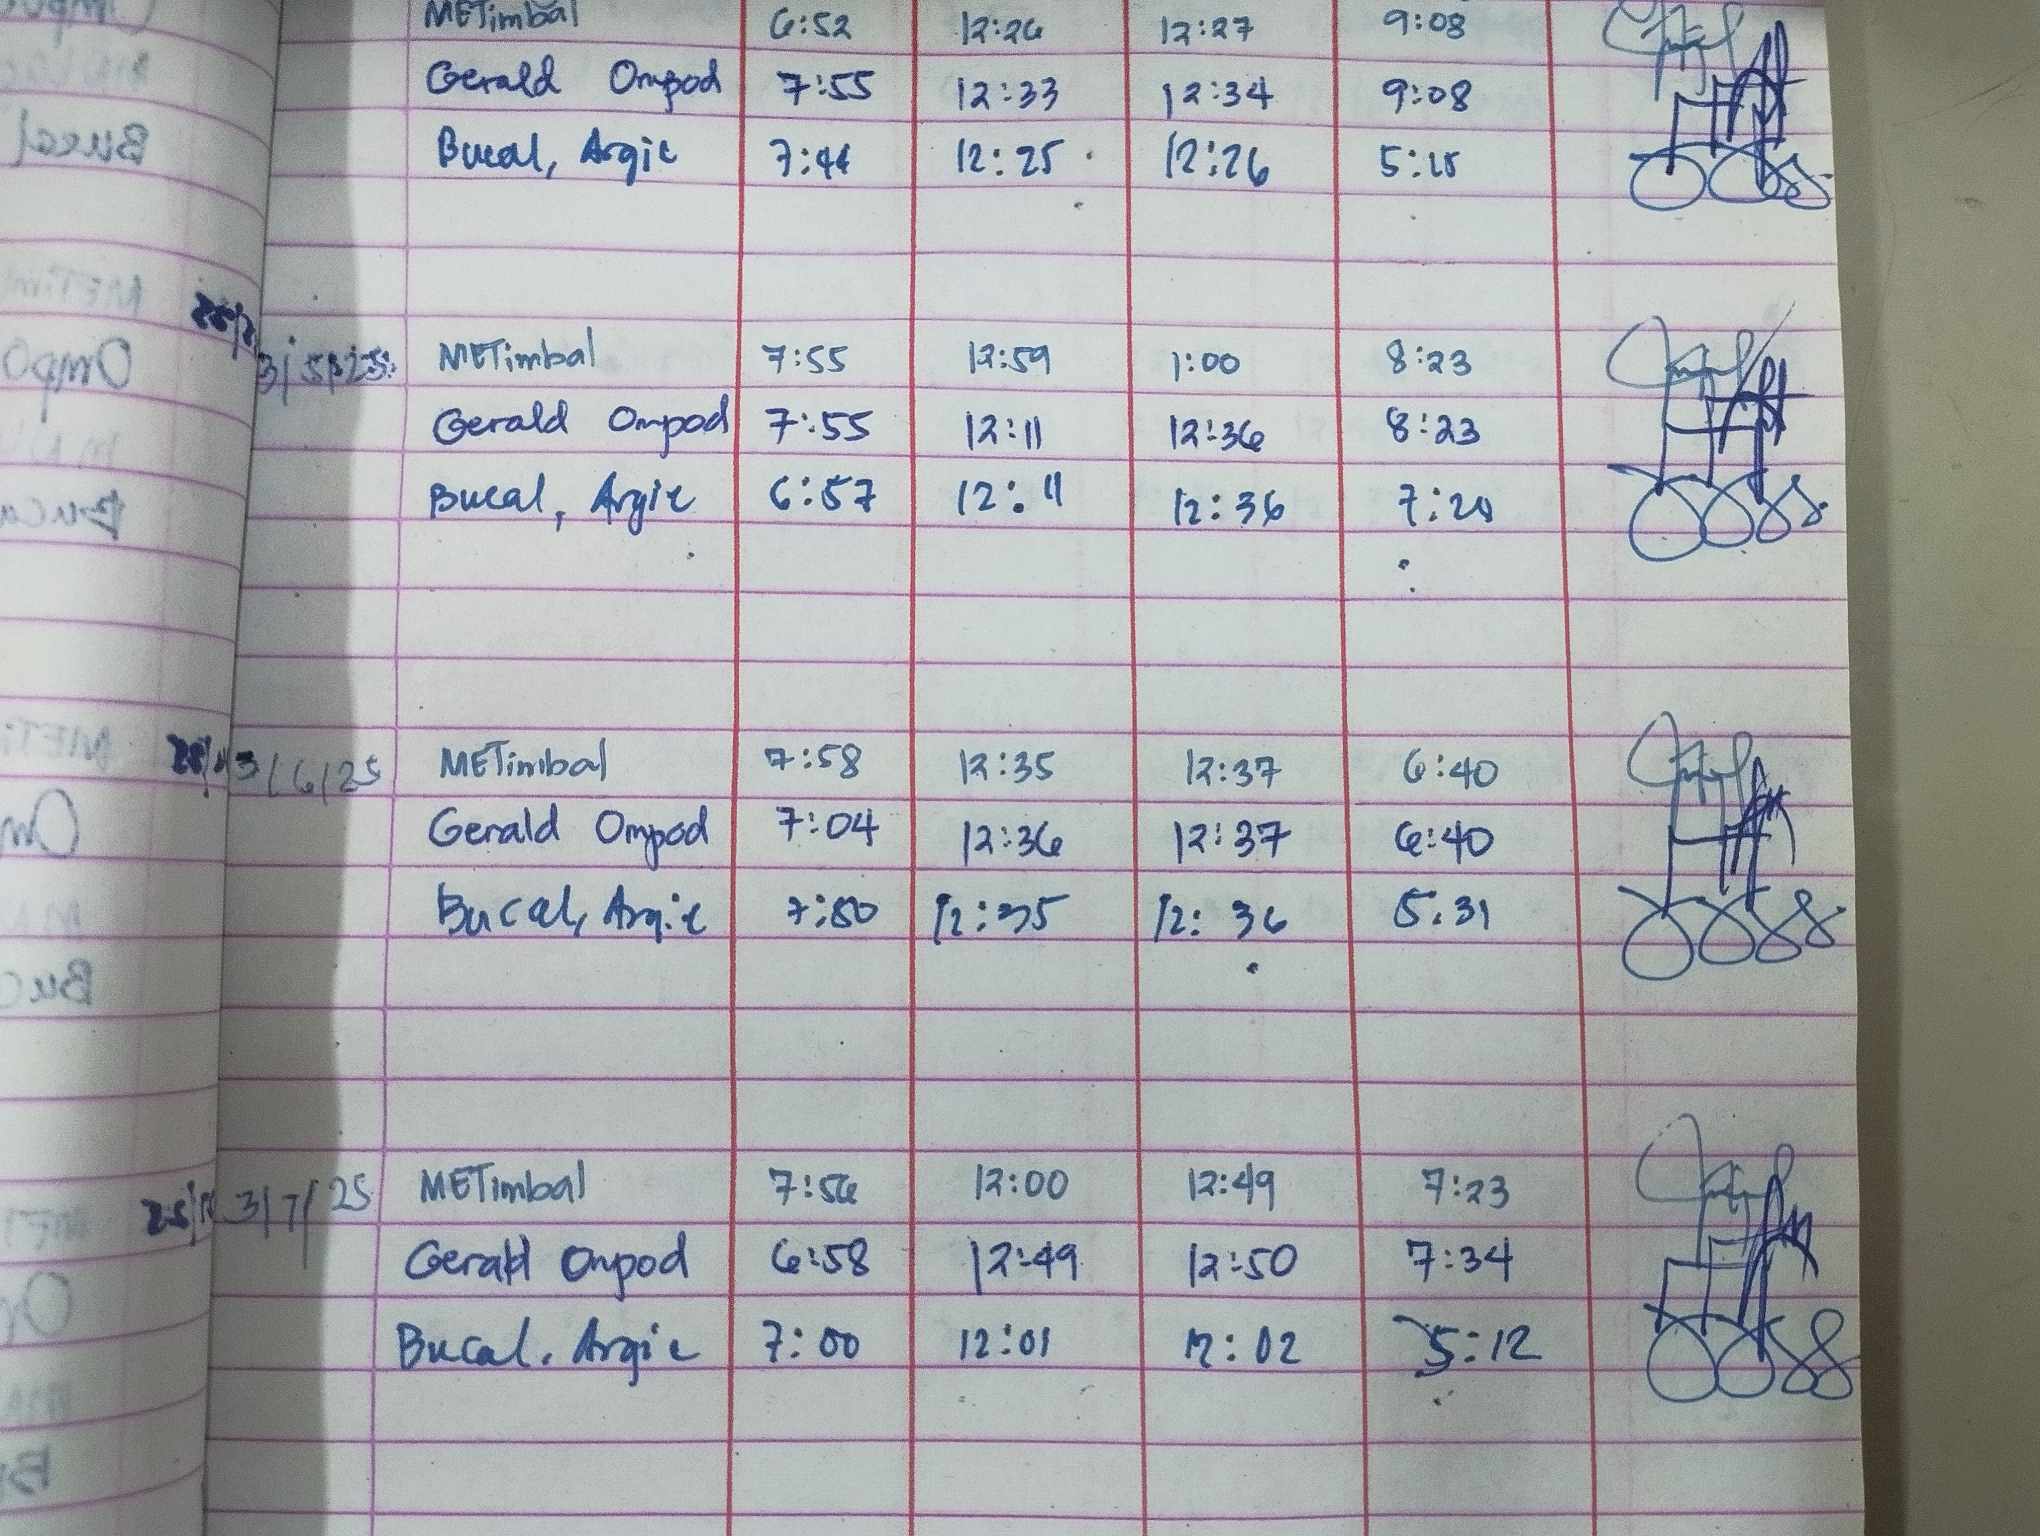 METimbal 6:52 12:26 12:27 9:08
Gerald Ompod 7:55 12:33 12:34 9:08
Bucal, Argie 7:44 12:25 12:26 5:15
3/5/25 METimbal 7:55 12:59 1:00 8:23
Gerald Ompod 7:55 12:11 12:36 8:23
Bucal, Argie 6:57 12:11 12:36
3/6/25 METimbal 7:58 12:35 12:37 6:40
Gerald Ompod 7:04 12:36 12:37 6:40
Bucal, Argie 7:50 12:35 12:36 5:31
3/7/25 METimbal 7:56 12:00 12:49 7:23
Gerald Ompod 6:58 12:49 12:50 7:34
Bucal, Argie 7:00 12:01 12:02 5:12